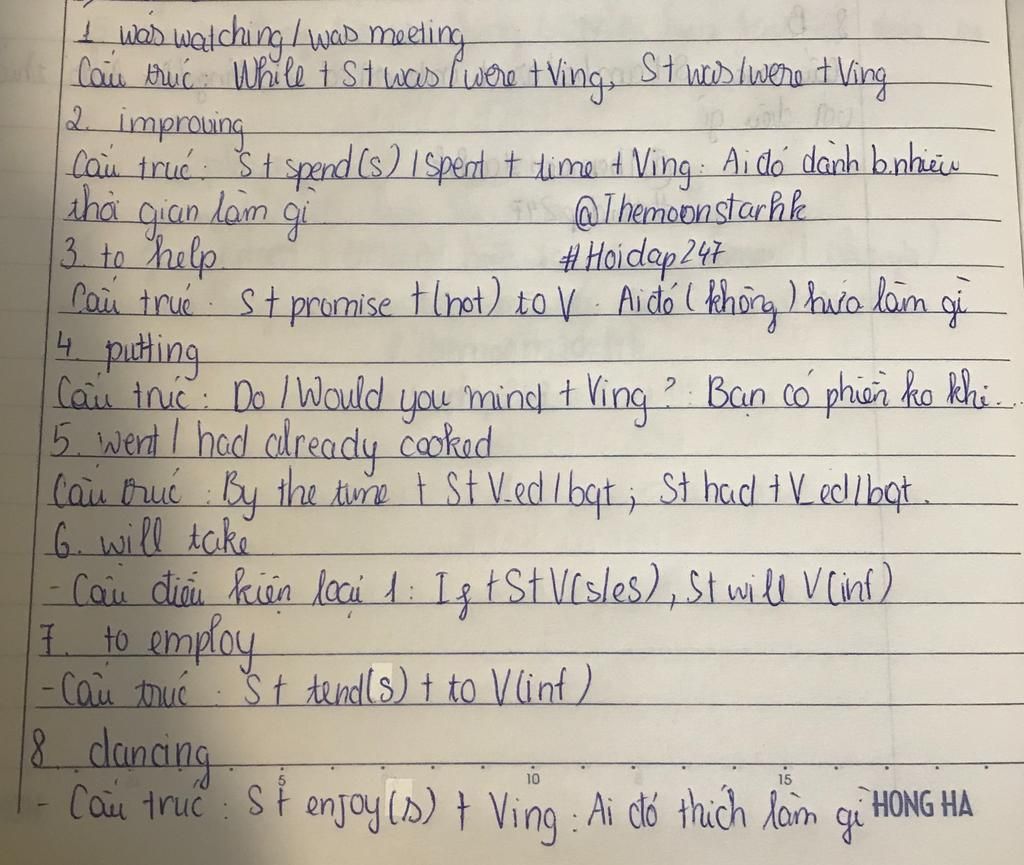 1. was watching / was meeting
Cấu trúc: While + S + was / were + Ving, S + was / were + Ving
2. improving
Cấu trúc: S + spend(s) / spent + time + Ving: Ai đó dành b.nhiêu
thời gian làm gì @Themoonstarhk
3. to help #Hoidap247
Cấu trúc: S + promise + (not) to V. Ai đó (không) hứa làm gì
4. putting
Cấu trúc: Do / Would you mind + Ving? Bạn có phiền ko khi...
5. went / had already cooked
Cấu trúc: By the time + S + V-ed / bqt; S + had + V_ed / bqt.
6. will take
- Câu điều kiện loại 1: If + S + V(s/es), S + will V(inf)
7. to employ
- Cấu trúc: S + tend(s) + to V(inf)
8. dancing
5 10 15
- Cấu trúc: S + enjoy(s) + Ving: Ai đó thích làm gì HONG HA